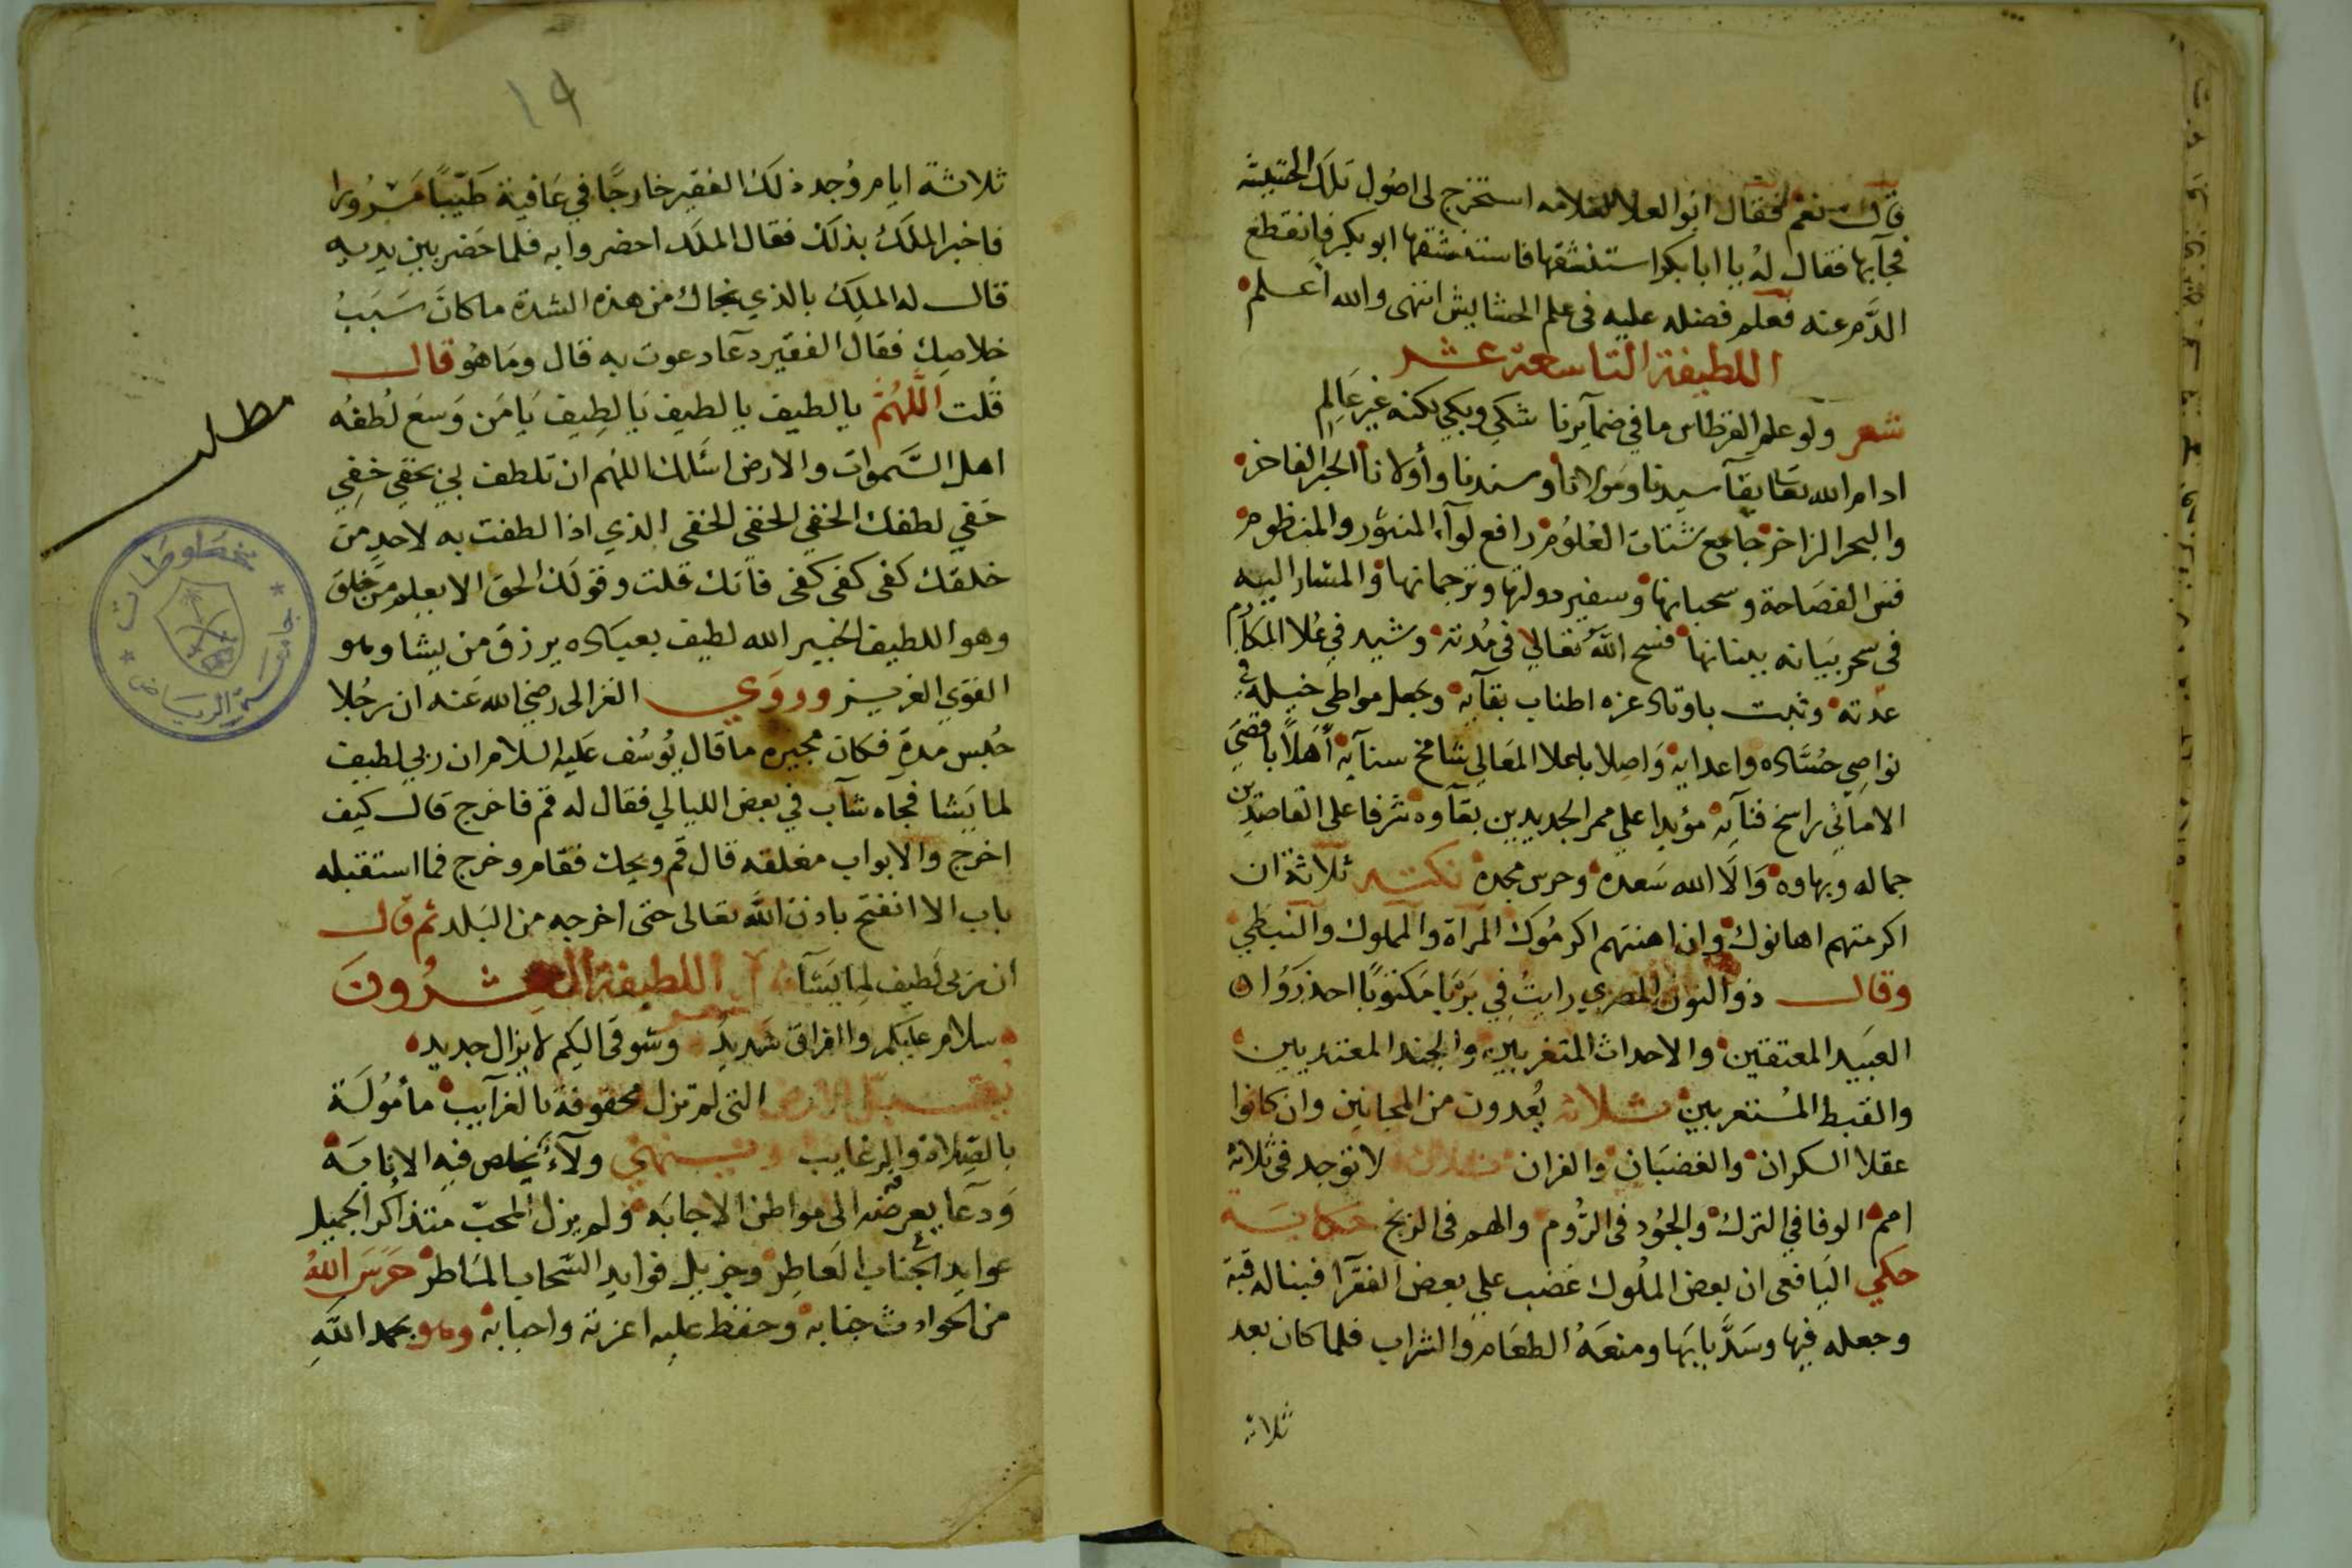 قال نعم فقال ابو العلا للغلامه استخرج لى اصول تلك الحشيشه
فجآبها فقال له يا ابا بكر استنشقها فاستنشقها ابو بكر فانقطع
الدم عنه فعلم فضله عليه فى علم الحشايش انتهى والله اعلم
اللطيفة التاسعة عشر
شعر ولو علم القرطاس ما في ضمآيرنا شكي وبكي لكنه غير عالم
ادام الله تعا بقآ سيدنا ومولانا وسندنا وأولانا الحبر الفاخر
والبحر الزاخر جامع شتات العلوم رافع لوآء المنثور والمنظوم
قس الفصاحة وسحبانها وسفير دولتها وترجمانها والمشار اليه
فى سحر بيانه ببنانها فسح الله تعالي في مدته وشيد في علا المكارم
عدته وثبت باوتاد عزه اطناب بقآيه وجعل مواطي خيله في
نواصي حساده واعدايه واصلا باعلا المعالي شامخ سنآيه أهلاً باقصي
الاماني راسخ فنآيه مؤيدا علي ممر الجديدين بقآوه مشرفا على القاصدين
جماله وبهاوه والا الله سعده وحرس مجده نكته ثلاثة ان
اكرمتهم اهانوك وان اهنتهم اكرموك المرآة والمملوك والنبطي
وقال ذو النون المصري رايت في بربا مكتوبًا احذروا
العبيد المعتقين والاحداث المتغربين والجند المعتدبين
والقبط المستعربين ثلاثه يعدون من المجانين وان كانوا
عقلا السكران والغضبان والغران ثلاث لا توجد فى ثلاثه
امم الوفا في الترك والجود فى الروم والهم فى الزنج حكاية
حكي اليافعى ان بعض الملوك غضب علي بعض الفقرآ فبنا له قبة
وجعله فيها وسدَّ بابها ومنعه الطعام والشراب فلما كان بعد
ثلاثة
١٩
ثلاثة ايام وُجد ذلك الفقير خارجًا في عافية طيبًا مسرورا
فاخبر الملك بذلك فقال الملك احضروا به فلما حضر بين يديه
قال له الملك بالذي نجاك من هذه الشدة ما كان سبب
خلاصك فقال الفقير دعآ دعوت به قال وما هو قال
قلت اللهم يا لطيف يا لطيف يا لطيف يا من وسع لطفه
مطلب
اهل السموات والارض اسًالك اللهم ان تلطف بي بخفي خفي
خفي لطفك الخفي الخفى الخفى الذي اذا لطفت به لاحد من
خلقك كفى كفى كفى فآنك قلت وقولك الحق الا يعلم من خلق
وهو اللطيف الخبير الله لطيف بعباده يرزق من يشا وهو
القوي العزيز وروي الغزالى رضي الله عنه ان رجُلا
حُبس مدة فكان مجيره ما قال يوُسُف عليه السلام ان ربي لطيف
لما يشا فجآه شآب في بعض الليالي فقال له قم فاخرج قال كيف
اخرج والابواب مغلقه قال قم ويحك فقام وخرج فما استقبله
باب الا انفتح باذن الله تعالى حتى اخرجه من البلد ثم قال
ان ربى لطيف لما يشآ اللطيفة العشرون
سلام عليكم والفراق شديد وشوقى اليكم لا يزال جديد
يقبل الارض التى لم تزل محقوقة بالغرآيب مأمُولَة
بالصلاة والرغايب وينهي ولآءً يخلص فيه الانابة
ودعآ يعرضه الى مواطن الاجابه ولم يزل المحبّ متذاكر الجميل
عوايد الجناب العاطر وجزيل فوايد السحاب الماطر حرس الله
من الحوادث جنابه وحفظ عليه اعزته واحبابه وهو بحمد الله
مخطوطات
جامعة الرياض